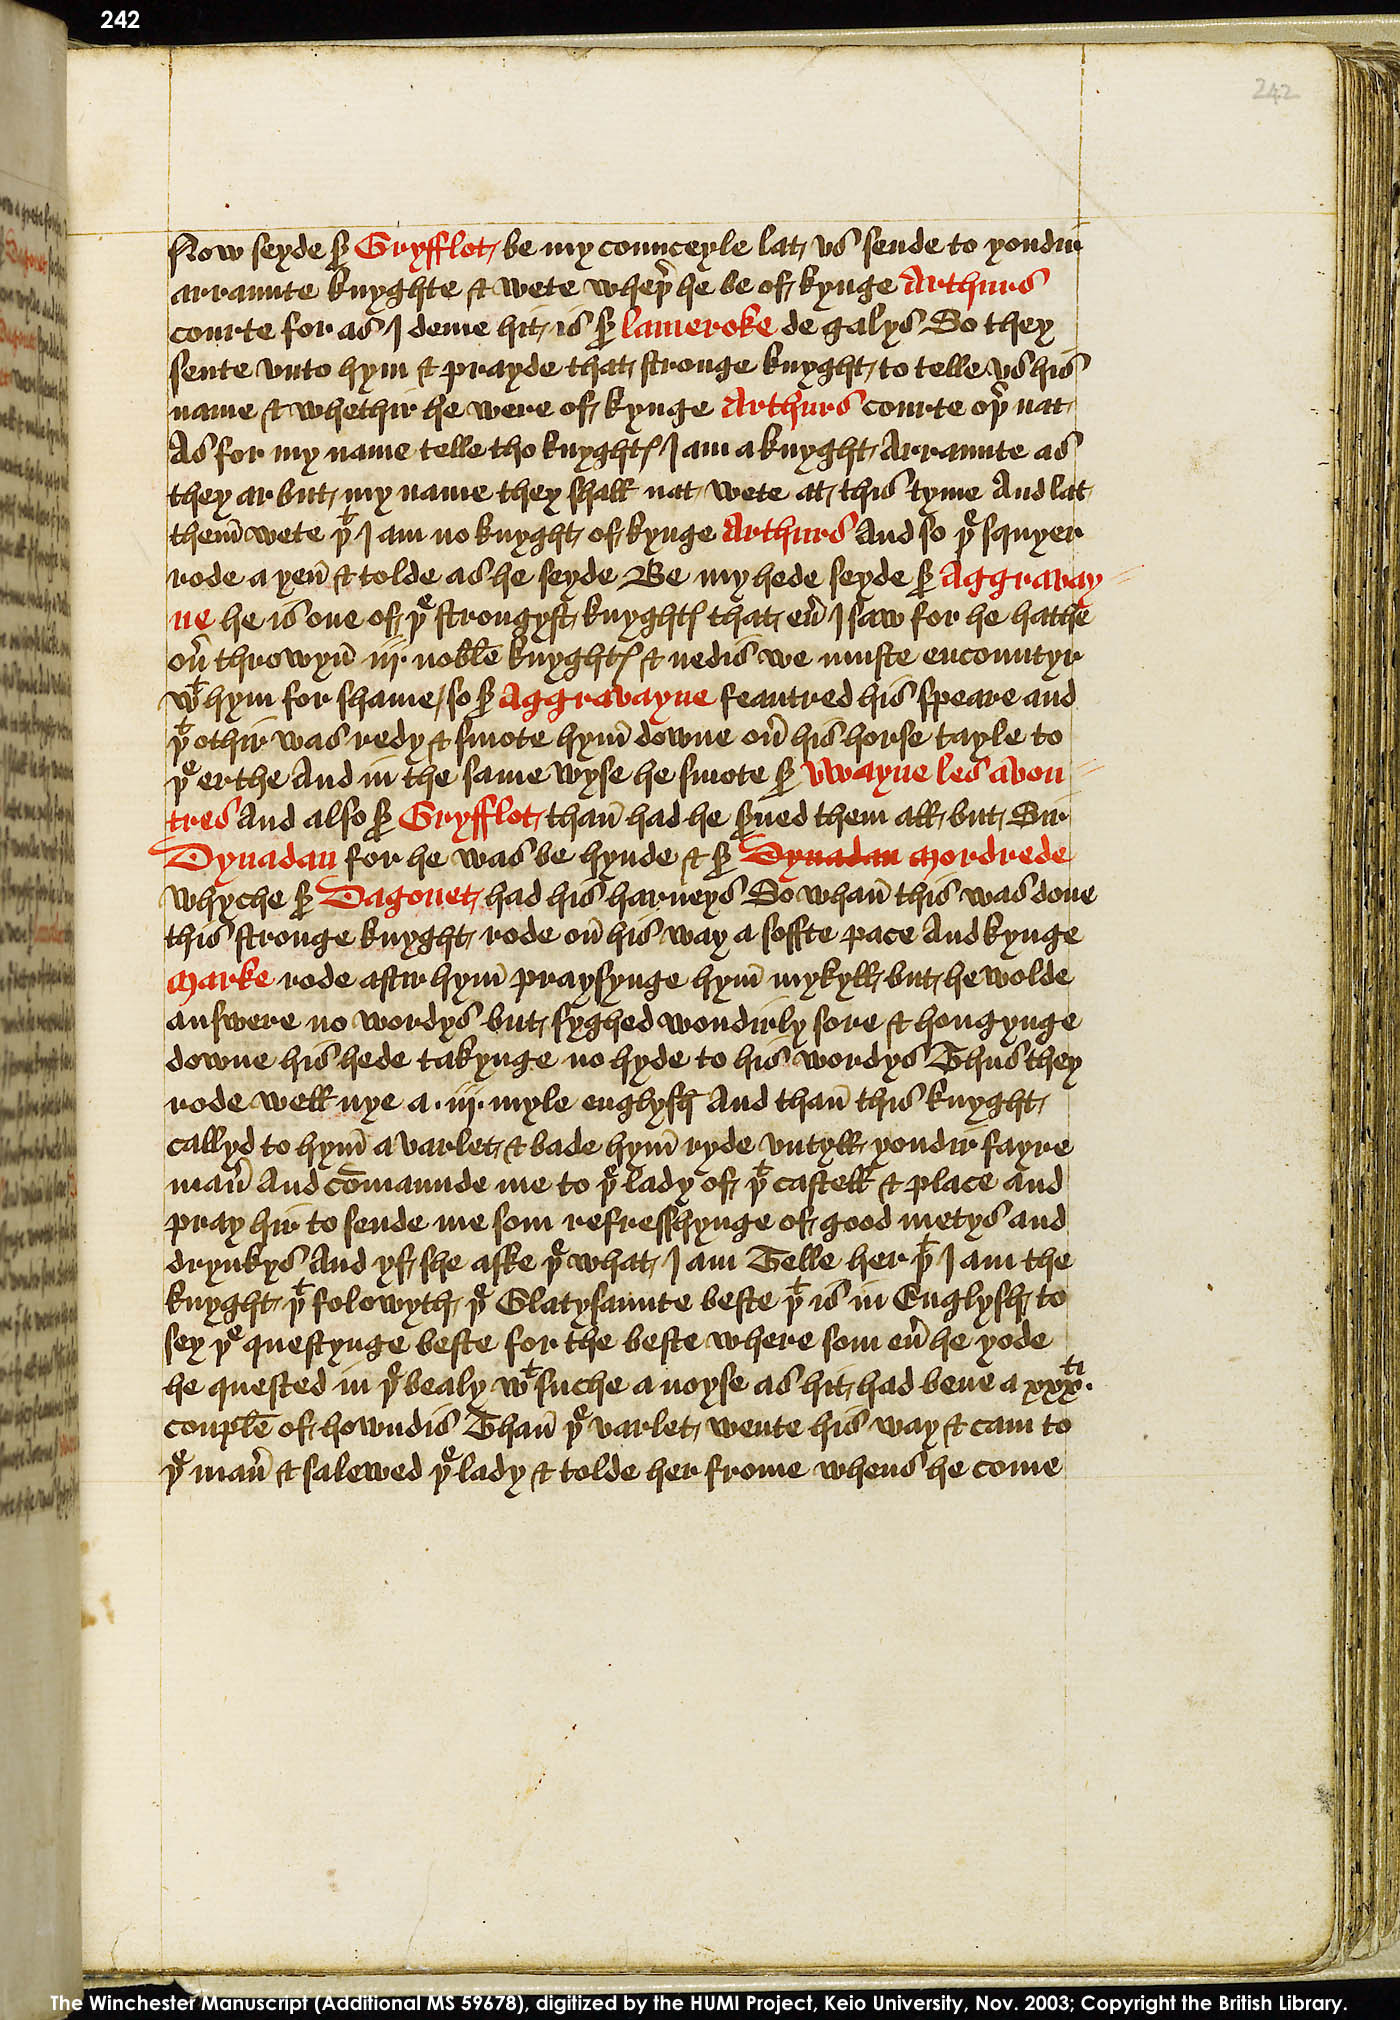 242
242
Now seyde sͬ Gryfflet be my counceyle lat vs sende to yondir
arraunte knyghte & wete wheþͬ he be of kynge Arthurs
courte for as I deme hit is sͬ lameroke de galys So they
sente vnto hym & prayde that stronge knyght to telle vs his
name & whethir he were of kynge Arthurs courte oþͬ nat
As for my name telle tho knyghtꝭ I am a knyght Arraunte as
they ar but my name they shall nat wete at this tyme And lat
them̄ wete þͭ I am no knyght of kynge Arthurs And so þͤ squyer
rode a yen̄ & tolde as he seyde Be my hede seyde sͬ Aggravay=
ne he is one of þͤ strongyst knyghtꝭ that eu̾ I saw for he hathe
ou̾ throwyn̄ iij noble knyghtꝭ & nedis we muste encountyr
wͭ hym for shame / so sͬ Aggravayne feautred his speare and
þͭ othir was redy & smote hym̄ downe ou̾ his horse tayle to
þͤ erthe And in the same wyse he smote sͬ Vwayne les avou=
tres And also sͬ Gryfflet than̄ had he s̾ued them all but Sir
Dynadan for he was be hynde & sͬ Dynadan Mordrede
whyche sͬ Dagonet had his harneys So whan̄ this was done
this stronge knyght rode on̄ his way a soffte pace And kynge
Marke rode aftir hym̄ praysynge hym̄ mykyll but he wolde
answere no wordys but syghed wondirly sore & hongynge
downe his hede takynge no hyde to his wordys Thus they
rode well nye a .iij. myle englysh And than̄ this knyght
callyd to hym̄ a varlet & bade hym̄ ryde vntyll yondir fayre
man̾ And com̄aunde me to þͤ lady of þͭ castell & place and
pray hir to sende me som refresshynge of good metys and
drynkys And yf she aske þͤ what I am Telle her þͭ I am the
knyght þͭ folowyth þͤ Glatysaunte beste þͭ is in Englysh to
sey þͤ questynge beste for the beste where som eu̾ he yode
he quested in þͤ bealy wͭ suche a noyse as hit had bene a xxxͭͥ.
couple of howndis Than̄ þͤ varlet wente his way & cam to
þͤ man̾ & salewed þͤ lady & tolde her frome whens he come
The Winchester Manuscript (Additional MS 59678), digitized by the HUMI Project, Keio University, Nov. 2003; Copyright the British Library.